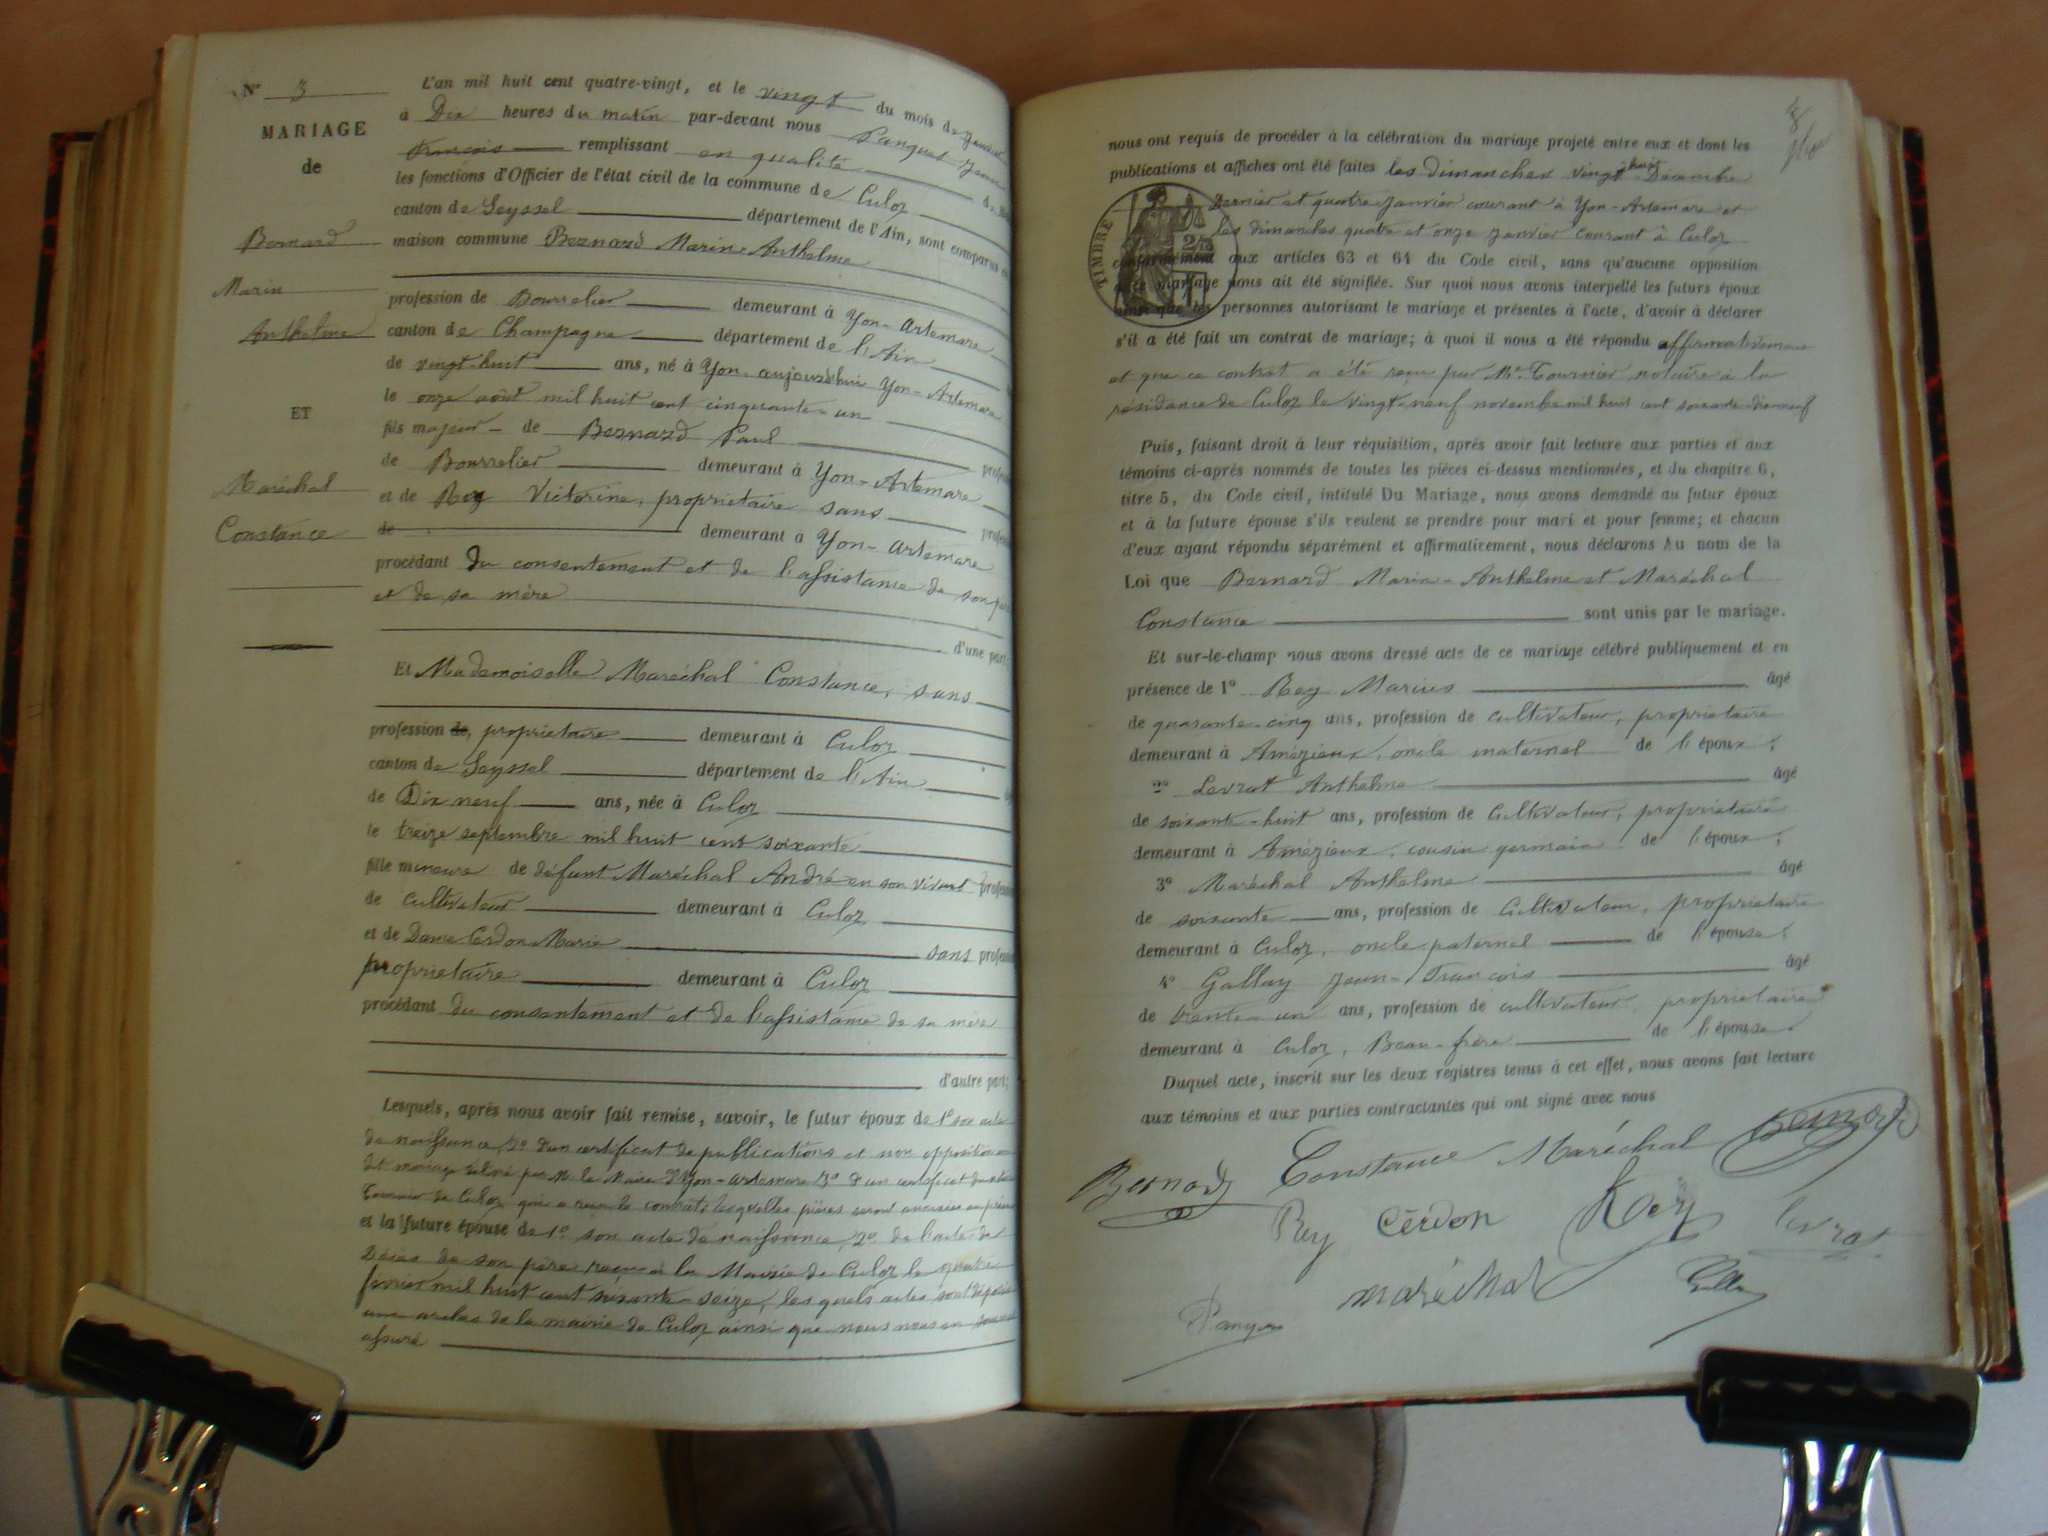 N° 3
MARIAGE
de
Bernard
Marin
Anthelme
ET
Maréchal
Constance
L'an mil huit cent quatre-vingt, et le vingt du mois de Janvier
à Dix heures du matin par-devant nous Panguet Jean
François remplissant en qualité de
les fonctions d'Officier de l'état civil de la commune de Culoz
canton de Seyssel département de l'Ain, sont comparus en
maison commune Bernard Marin-Anthelme
profession de Bourrelier demeurant à Yon-Artemare
canton de Champagne département de l'Ain
de vingt-huit ans, né à Yon, aujourd'hui Yon-Artemare
le onze août mil huit cent cinquante-un
fils majeur de Bernard Paul
de Bourrelier demeurant à Yon-Artemare
et de Rey Victorine, propriétaire sans
de demeurant à Yon-Artemare
procédant du consentement et de l'assistance de son père
et de sa mère
d'une part;
Et Mademoiselle Maréchal Constance, sans
profession de, propriétaire demeurant à Culoz
canton de Seyssel département de l'Ain
de Dix neuf ans, née à Culoz
le treize septembre mil huit cent soixante
fille mineure de défunt Maréchal André en son vivant
de cultivateur demeurant à Culoz
et de Dame Cerdon Marie sans
propriétaire demeurant à Culoz
procédant du consentement et de l'assistance de sa mère
d'autre part;
Lesquels, après nous avoir fait remise, savoir, le futur époux de 1° son acte
de naissance, 2° d'un certificat de publications et non opposition
dt mariage délivré par Mr le Maire d'Yon-Artemare 3° d'un certificat du notaire
Tournier de Culoz qui a reçu le contrat, lesquelles pièces seront annexées
et la future épouse de 1° son acte de naissance, 2° de l'acte de
Décès de son père reçu à la Mairie de Culoz le quatre
février mil huit cent soixante-seize, lesquels actes sont déposés
aux archives de la mairie de Culoz ainsi que nous nous en sommes
assuré
nous ont requis de procéder à la célébration du mariage projeté entre eux et dont les
publications et affiches ont été faites les dimanches vingt-huit Décembre
Dernier et quatre Janvier courant à Yon-Artemare et
les dimanches quatre et onze Janvier courant à Culoz
TIMBRE
conformément aux articles 63 et 64 du Code civil, sans qu'aucune opposition
à ce mariage nous ait été signifiée. Sur quoi nous avons interpellé les futurs époux
ainsi que les personnes autorisant le mariage et présentes à l'acte, d'avoir à déclarer
s'il a été fait un contrat de mariage; à quoi il nous a été répondu affirmativement
et que ce contrat a été reçu par Me Tournier notaire à la
résidence de Culoz le vingt-neuf novembre mil huit cent soixante-dix-neuf
Puis, faisant droit à leur réquisition, après avoir fait lecture aux parties et aux
témoins ci-après nommés de toutes les pièces ci-dessus mentionnées, et du chapitre 6,
titre 5, du Code civil, intitulé Du Mariage, nous avons demandé au futur époux
et à la future épouse s'ils veulent se prendre pour mari et pour femme; et chacun
d'eux ayant répondu séparément et affirmativement, nous déclarons Au nom de la
Loi que Bernard Marin-Anthelme et Maréchal
Constance sont unis par le mariage.
Et sur-le-champ nous avons dressé acte de ce mariage célébré publiquement et en
présence de 1° Rey Marius âgé
de quarante-cinq ans, profession de cultivateur, propriétaire
demeurant à Amézieux, oncle maternel de l'époux;
2° Levrat Anthelme âgé
de soixante-huit ans, profession de Cultivateur, propriétaire
demeurant à Amézieux, cousin germain de l'époux;
3° Maréchal Anthelme âgé
de soixante ans, profession de Cultivateur, propriétaire
demeurant à Culoz, oncle paternel de l'épouse;
4° Gallay Jean-François âgé
de trente-un ans, profession de cultivateur, propriétaire
demeurant à Culoz, Beau-frère de l'épouse.
Duquel acte, inscrit sur les deux registres tenus à cet effet, nous avons fait lecture
aux témoins et aux parties contractantes qui ont signé avec nous
Bernard Constance Maréchal Bernard
Rey Cerdon Rey Levrat
maréchal